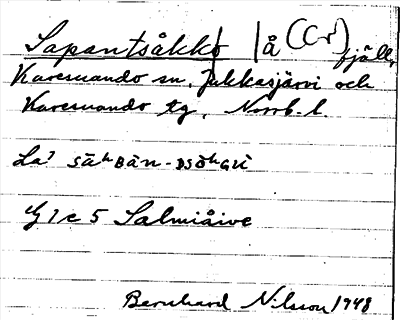 Sapantsåkko | å (Cr) fjäll,
Karesuando sn, Jukkasjärvi och
Karesuando tg, Norrb. l.
La' säʰʙän-ᴅsöʰɢu̇
Y 1 c 5 Salmiåive
Bernhard Nilsson 1948